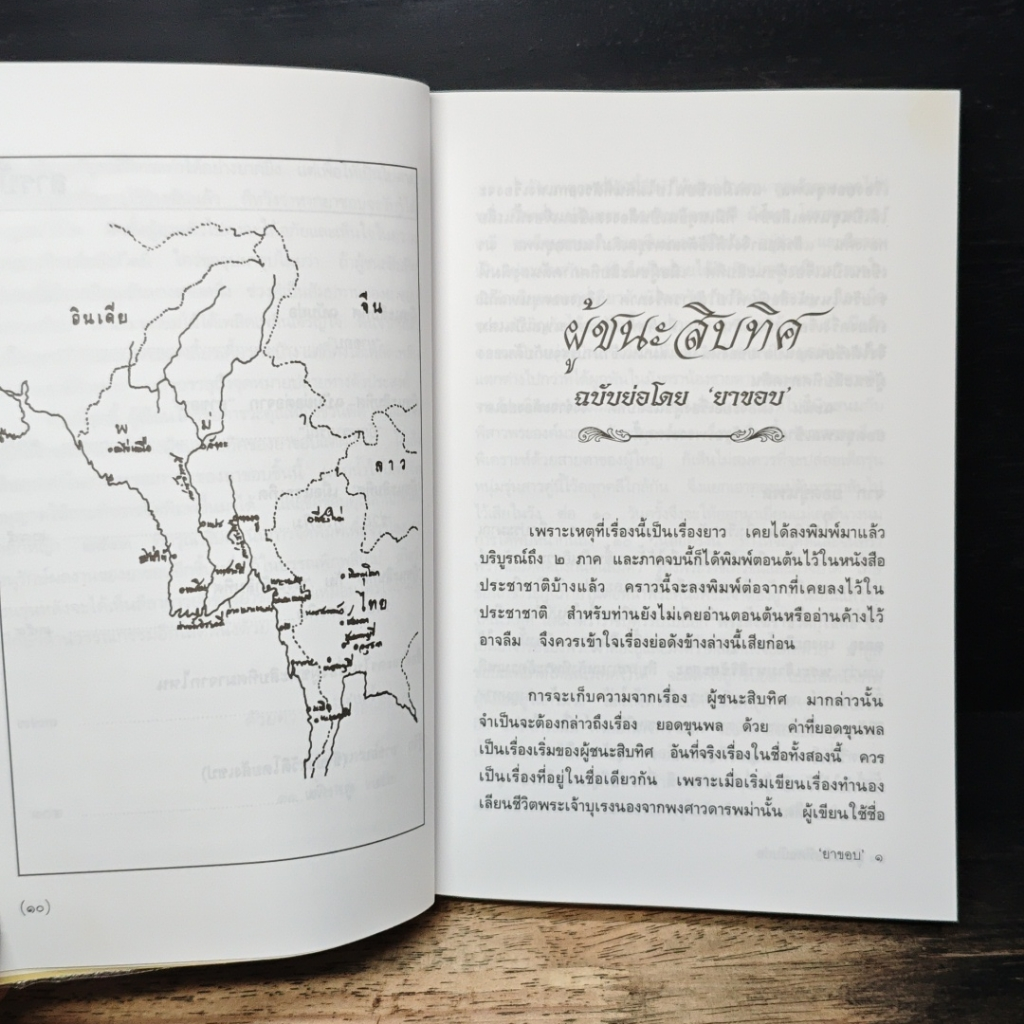 อินเดีย
จีน
พ
ม่
า
ลาว
เชียงใหม่
ไทย
(๑๐)
ผู้ชนะสิบทิศ
ฉบับย่อโดย 'ยาขอบ'
เพราะเหตุที่เรื่องนี้เป็นเรื่องยาว เคยได้ลงพิมพ์มาแล้ว
บริบูรณ์ถึง ๒ ภาค และภาคจบนี้ก็ได้พิมพ์ตอนต้นไว้ในหนังสือ
ประชาชาติบ้างแล้ว คราวนี้จะลงพิมพ์ต่อจากที่เคยลงไว้ใน
ประชาชาติ สำหรับท่านยังไม่เคยอ่านตอนต้นหรืออ่านค้างไว้
อาจลืม จึงควรเข้าใจเรื่องย่อดังข้างล่างนี้เสียก่อน
การจะเก็บความจากเรื่อง ผู้ชนะสิบทิศ มากล่าวนั้น
จำเป็นจะต้องกล่าวถึงเรื่อง ยอดขุนพล ด้วย ค่าที่ยอดขุนพล
เป็นเรื่องเริ่มของผู้ชนะสิบทิศ อันที่จริงเรื่องในชื่อทั้งสองนี้ ควร
เป็นเรื่องที่อยู่ในชื่อเดียวกัน เพราะเมื่อเริ่มเขียนเรื่องทำนอง
เลียนชีวิตพระเจ้าบุเรงนองจากพงศาวดารพม่านั้น ผู้เขียนใช้ชื่อ
'ยาขอบ' ๑